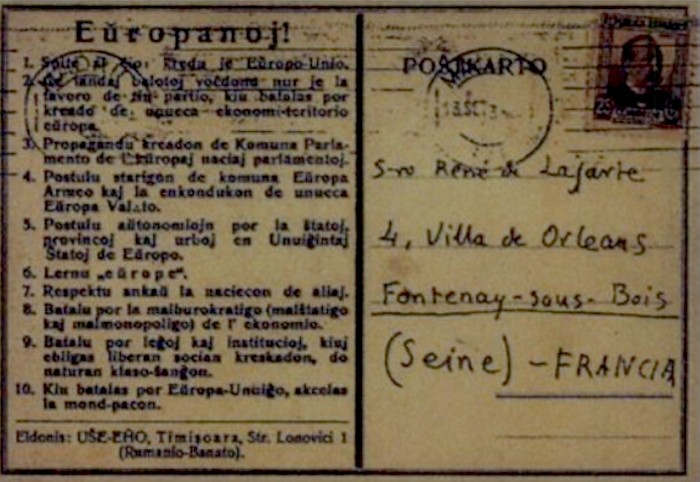 Eŭropanoj!
1. kredu je Eŭropo-Unio.
2. landaj balotoj voĉdonu nur je la
favoro de tiu partio, kiu batalas por
kreado de unueca ekonomi-teritorio
eŭropa.
3. Propagandu kreadon de Komuna Parla-
mento de l' Eŭropaj naciaj parlamentoj.
4. Postulu starigon de komuna Eŭropa
Armeo kaj la enkondukon de unueca
Eŭropa Valuto.
5. Postulu aŭtonomiojn por la ŝtatoj,
provincoj kaj urboj en Unuiĝintaj
Ŝtatoj de Eŭropo.
6. Lernu „eŭrope“.
7. Respektu ankaŭ la naciecon de aliaj.
8. Batalu por la malburokratigo (malŝtatigo
kaj malmonopoligo) de l' ekonomio.
9. Batalu por leĝoj kaj institucioj, kiuj
ebligas liberan socian kreskadon, do
naturan klaso-ŝanĝon.
10. Kiu batalas por Eŭropa-Unuiĝo, akcelas
la mond-pacon.
Eldonis: UŜE-EŬO, Timişoara, Str. Lonovici 1
(Rumanio-Banato).
POŜTKARTO
25
S-ro René de Lajarte
4, Villa de Orleans
Fontenay-sous-Bois
(Seine) - FRANCIA